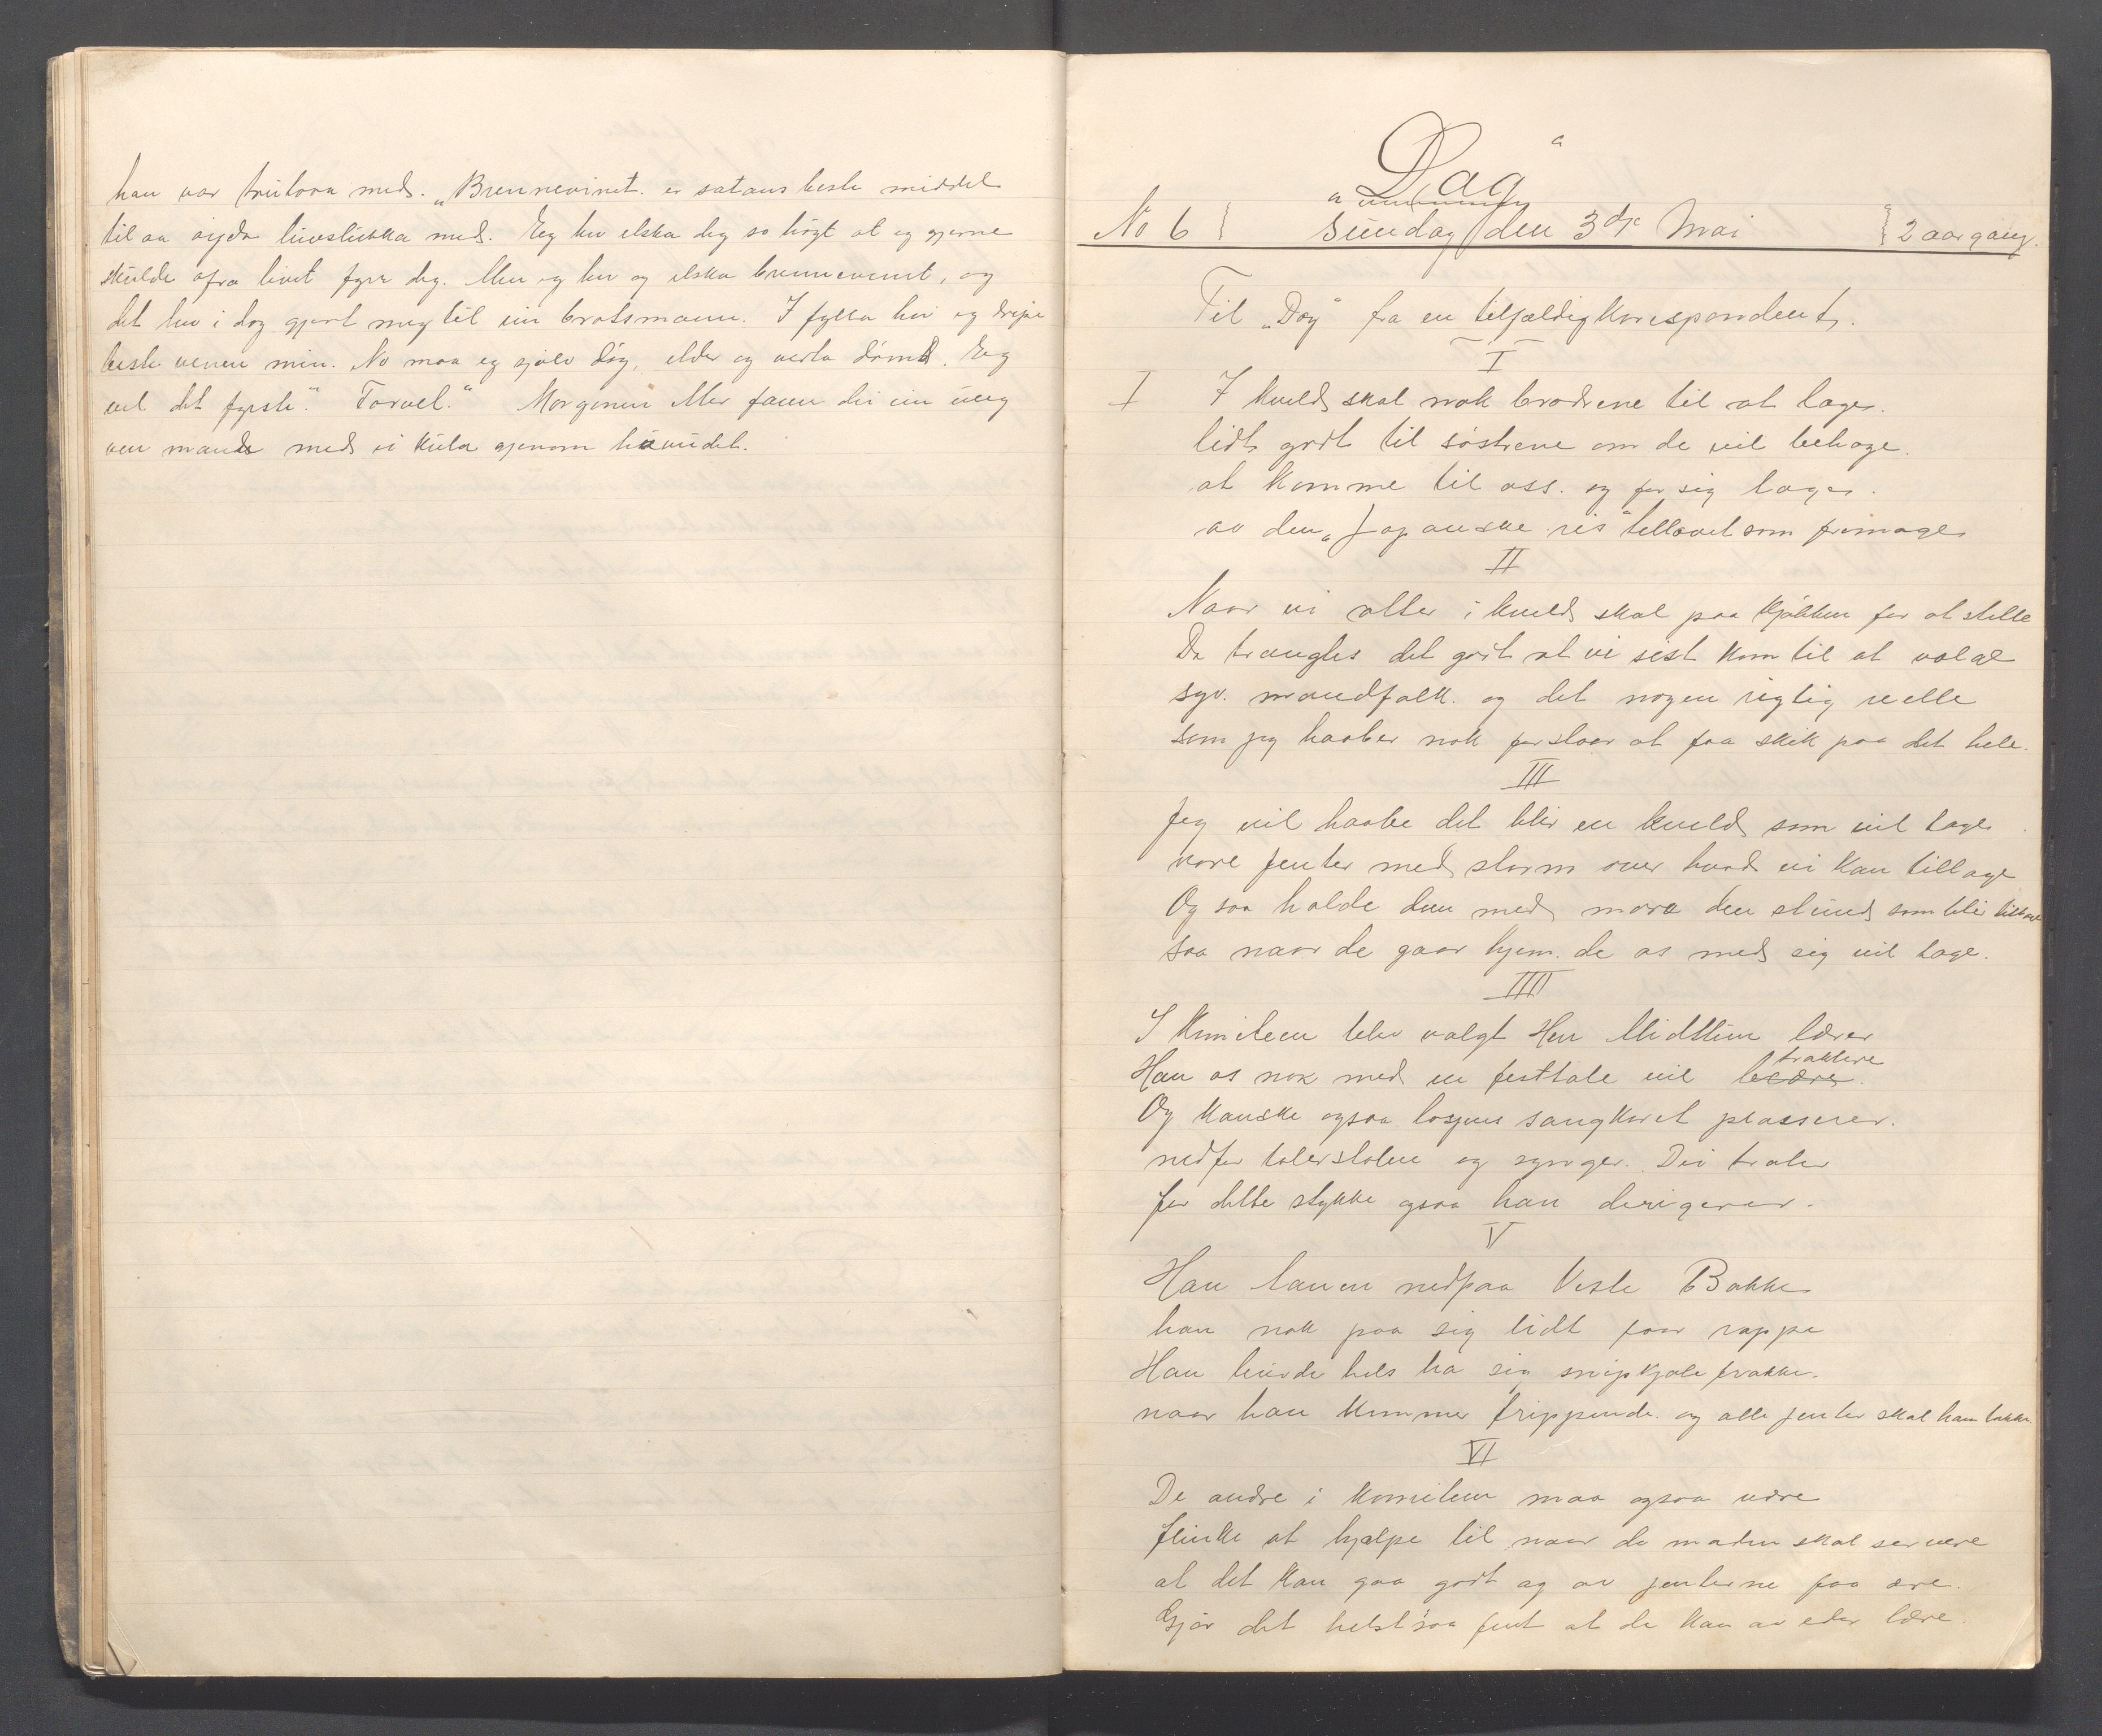 han var trulova med. „Brennevinet er satans beste middel
til aa øyda livslukka med. Eg hev elska deg so høgt at eg gjerne
skulde ofra livet fyre deg. Men eg hev og elska brennevinet, og
det hev i dag gjort meg til ein brotsmann. I fylla hev eg dripe
beste venen min. No maa eg sjølv døy, elder og verta dømd. Eg
vel det fyrste." Farvel." Morgonen etter fann dei ein ung
ven mand med ei kula gjenom hovudet.
„Dag"
No 6 Sundag den 3dje Mai 2 aargang.
Til „Dag" fra en tilfældig korespondent.
I
I I kveld skal nok brødrene til at lage.
lidt godt til søstrene om de vil behage.
at komme til oss. og for sig tage.
av den „Japanske ris" tillavet som fromage
II
Naar vi atter i kveld skal paa kjøkken for at stelle
Da trængtes det godt at vi sist kom til at
syv. mandfolk. og det nogen rigtig reelle
som jeg haaber nok forstaar at faa skik paa det hele.
III
Jeg vil haabe det blir en kveld som vil tage
vore jenter med storm over hvad vi kan tillage
Og saa holde dem med moro den stund som blir
saa naar de gaar hjem. de os med sig vil tage.
IIII
I komiteen blev valgt Herr Midttun lærer
Han os nok med en festtale vil beære traktere.
Og kanske ogsaa losjens sangkoret plasserer.
nedfor talerstolen og synger. Dei traler
for dette stykke ogsaa han dirigerer.
V
Han nedpaa Vesle Bakke
han nok paa sig lidt faar rappe
Han burde hels ha sig snipkjole frakke.
naar han kommer trippende. og alle jenter skal han takke.
VI
De andre i komiteen maa ogsaa være
flinke at hjælpe til naar de maden skal servere
at det kan gaa godt og av jenterne faa ære.
Gjør det helst saa fint at de kan av eder lære